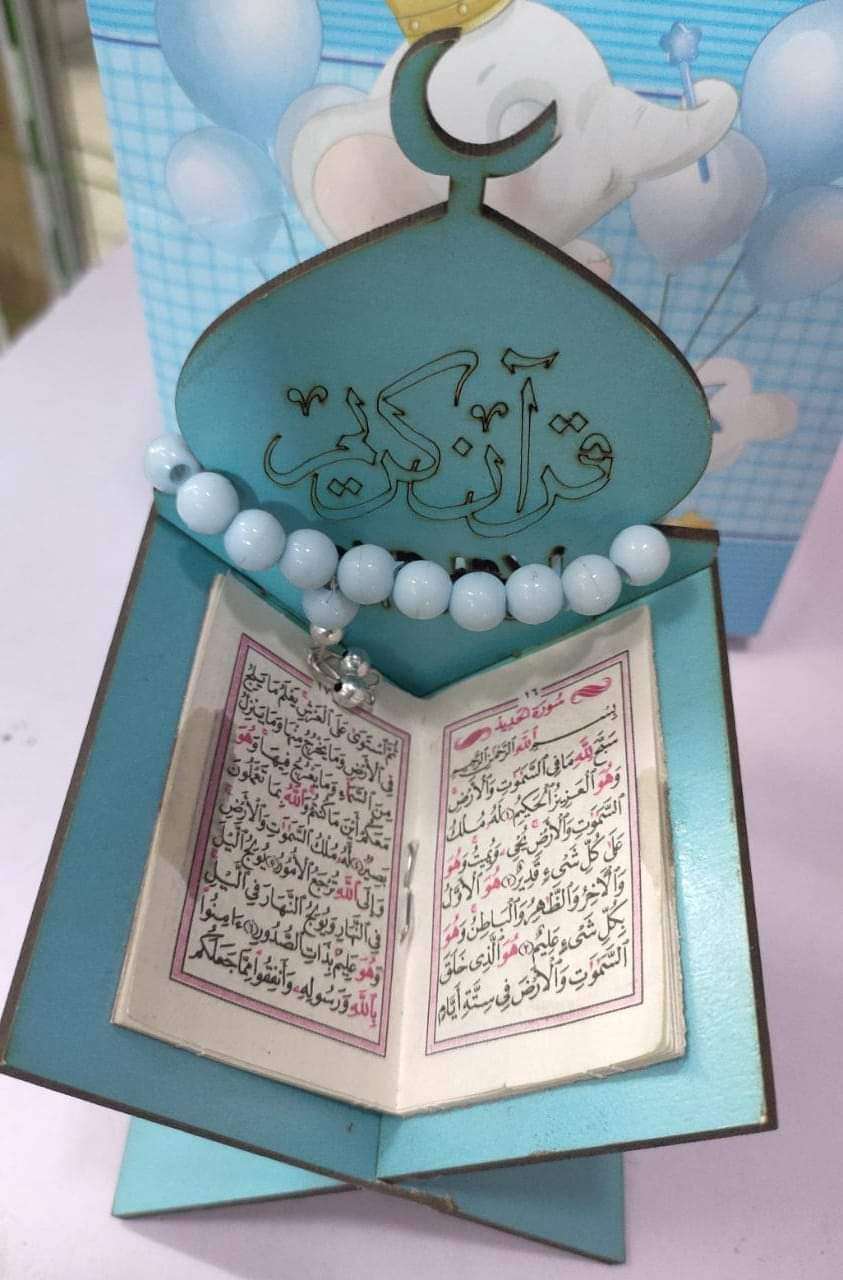 قرآن كريم
١٦
سُورَة الحديد
بِسْمِ ٱللَّهِ ٱلرَّحْمَٰنِ ٱلرَّحِيمِ
سَبَّحَ لِلَّهِ مَا فِى ٱلسَّمَٰوَٰتِ وَٱلْأَرْضِ
وَهُوَ ٱلْعَزِيزُ ٱلْحَكِيمُ ١ لَهُۥ مُلْكُ
ٱلسَّمَٰوَٰتِ وَٱلْأَرْضِ يُحْىِۦ وَيُمِيتُ وَهُوَ
عَلَىٰ كُلِّ شَىْءٍ قَدِيرٌ ٢ هُوَ ٱلْأَوَّلُ
وَٱلْءَاخِرُ وَٱلظَّٰهِرُ وَٱلْبَاطِنُ وَهُوَ
بِكُلِّ شَىْءٍ عَلِيمٌ ٣ هُوَ ٱلَّذِى خَلَقَ
ٱلسَّمَٰوَٰتِ وَٱلْأَرْضَ فِى سِتَّةِ أَيَّامٍ
ثُمَّ ٱسْتَوَىٰ عَلَى ٱلْعَرْشِ يَعْلَمُ مَا يَلِجُ
فِى ٱلْأَرْضِ وَمَا يَخْرُجُ مِنْهَا وَمَا يَنزِلُ
مِنَ ٱلسَّمَآءِ وَمَا يَعْرُجُ فِيهَا وَهُوَ
مَعَكُمْ أَيْنَ مَا كُنتُمْ وَٱللَّهُ بِمَا تَعْمَلُونَ
بَصِيرٌ ٤ لَّهُۥ مُلْكُ ٱلسَّمَٰوَٰتِ وَٱلْأَرْضِ
وَإِلَى ٱللَّهِ تُرْجَعُ ٱلْأُمُورُ ٥ يُولِجُ ٱلَّيْلَ
فِى ٱلنَّهَارِ وَيُولِجُ ٱلنَّهَارَ فِى ٱلَّيْلِ
وَهُوَ عَلِيمٌۢ بِذَاتِ ٱلصُّدُورِ ٦ ءَامِنُوا۟
بِٱللَّهِ وَرَسُولِهِۦ وَأَنفِقُوا۟ مِمَّا جَعَلَكُم